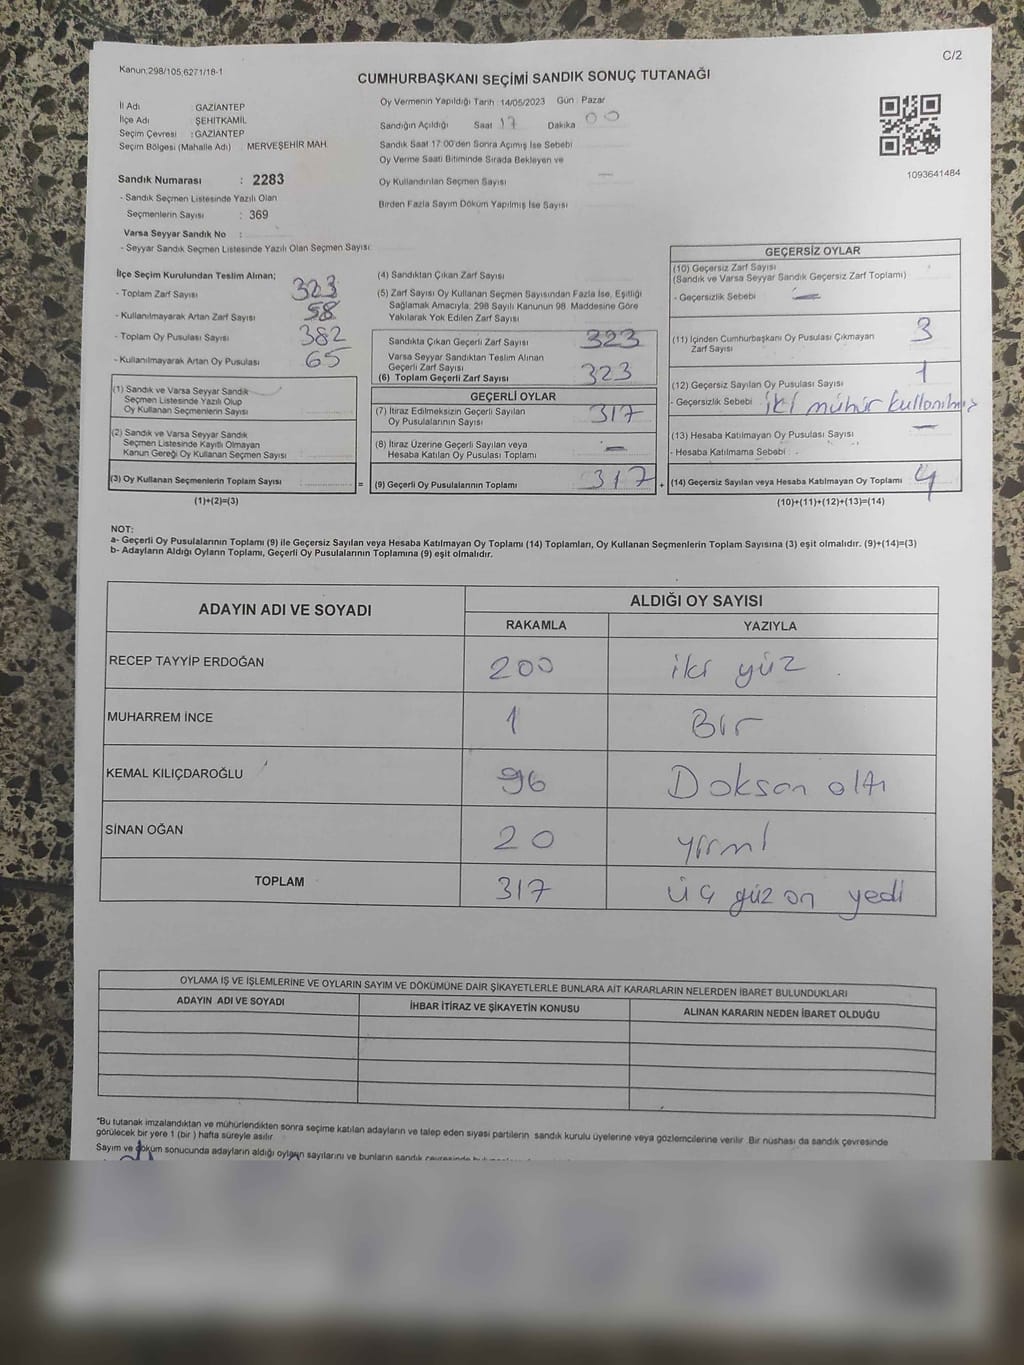 C/2
Kanun:298/105,6271/18-1
CUMHURBAŞKANI SEÇİMİ SANDIK SONUÇ TUTANAĞI
İl Adı : GAZİANTEP
İlçe Adı : ŞEHİTKAMİL
Seçim Çevresi : GAZİANTEP
Seçim Bölgesi (Mahalle Adı) MERVEŞEHİR MAH.
Oy Vermenin Yapıldığı Tarih : 14/05/2023 Gün : Pazar
Sandığın Açıldığı Saat 17 Dakika 00
Sandık Saat 17:00'den Sonra Açımış İse Sebebi
Oy Verme Saati Bitiminde Sırada Bekleyen ve
Oy Kullandırılan Seçmen Sayısı —
Birden Fazla Sayım Döküm Yapılmış İse Sayısı
1093641484
Sandık Numarası : 2283
- Sandık Seçmen Listesinde Yazılı Olan
Seçmenlerin Sayısı : 369
Varsa Seyyar Sandık No :
- Seyyar Sandık Seçmen Listesinde Yazılı Olan Seçmen Sayısı:
İlçe Seçim Kurulundan Teslim Alınan;
- Toplam Zarf Sayısı 323
- Kullanılmayarak Artan Zarf Sayısı 58
- Toplam Oy Pusulası Sayısı 382
- Kullanılmayarak Artan Oy Pusulası 65
(1) Sandık ve Varsa Seyyar Sandık
Seçmen Listesinde Yazılı Olup
Oy Kullanan Seçmenlerin Sayısı
(2) Sandık ve Varsa Seyyar Sandık
Seçmen Listesinde Kayıtlı Olmayan
Kanun Gereği Oy Kullanan Seçmen Sayısı
(3) Oy Kullanan Seçmenlerin Toplam Sayısı
(1)+(2)=(3)
(4) Sandıktan Çıkan Zarf Sayısı
(5) Zarf Sayısı Oy Kullanan Seçmen Sayısından Fazla İse, Eşitliği
Sağlamak Amacıyla; 298 Sayılı Kanunun 98. Maddesine Göre
Yakılarak Yok Edilen Zarf Sayısı
Sandıkta Çıkan Geçerli Zarf Sayısı 323
Varsa Seyyar Sandıktan Teslim Alınan
Geçerli Zarf Sayısı
(6) Toplam Geçerli Zarf Sayısı 323
GEÇERLİ OYLAR
(7) İtiraz Edilmeksizin Geçerli Sayılan
Oy Pusulalarının Sayısı 317
(8) İtiraz Üzerine Geçerli Sayılan veya
Hesaba Katılan Oy Pusulası Toplamı —
= (9) Geçerli Oy Pusulalarının Toplamı 317 +
GEÇERSİZ OYLAR
(10) Geçersiz Zarf Sayısı
(Sandık ve Varsa Seyyar Sandık Geçersiz Zarf Toplamı)
- Geçersizlik Sebebi —
(11) İçinden Cumhurbaşkanı Oy Pusulası Çıkmayan
Zarf Sayısı 3
(12) Geçersiz Sayılan Oy Pusulası Sayısı 1
- Geçersizlik Sebebi iki mühür kullanılmış
(13) Hesaba Katılmayan Oy Pusulası Sayısı —
- Hesaba Katılmama Sebebi :
(14) Geçersiz Sayılan veya Hesaba Katılmayan Oy Toplamı 4
(10)+(11)+(12)+(13)=(14)
NOT:
a- Geçerli Oy Pusulalarının Toplamı (9) ile Geçersiz Sayılan veya Hesaba Katılmayan Oy Toplamı (14) Toplamları, Oy Kullanan Seçmenlerin Toplam Sayısına (3) eşit olmalıdır. (9)+(14)=(3)
b- Adayların Aldığı Oyların Toplamı, Geçerli Oy Pusulalarının Toplamına (9) eşit olmalıdır.
ADAYIN ADI VE SOYADI ALDIĞI OY SAYISI
RAKAMLA YAZIYLA
RECEP TAYYİP ERDOĞAN 200 iki yüz
MUHARREM İNCE 1 Bir
KEMAL KILIÇDAROĞLU 96 Doksan altı
SİNAN OĞAN 20 yirmi
TOPLAM 317 üç yüz on yedi
OYLAMA İŞ VE İŞLEMLERİNE VE OYLARIN SAYIM VE DÖKÜMÜNE DAİR ŞİKAYETLERLE BUNLARA AİT KARARLARIN NELERDEN İBARET BULUNDUKLARI
ADAYIN ADI VE SOYADI İHBAR İTİRAZ VE ŞİKAYETİN KONUSU ALINAN KARARIN NEDEN İBARET OLDUĞU
*Bu tutanak imzalandıktan ve mühürlendikten sonra seçime katılan adayların ve talep eden siyasi partilerin sandık kurulu üyelerine veya gözlemcilerine verilir. Bir nüshası da sandık çevresinde
görülecek bir yere 1 (bir ) hafta süreyle asılır.
Sayım ve döküm sonucunda adayların aldığı oyların sayılarını ve bunların sandık çevresinde